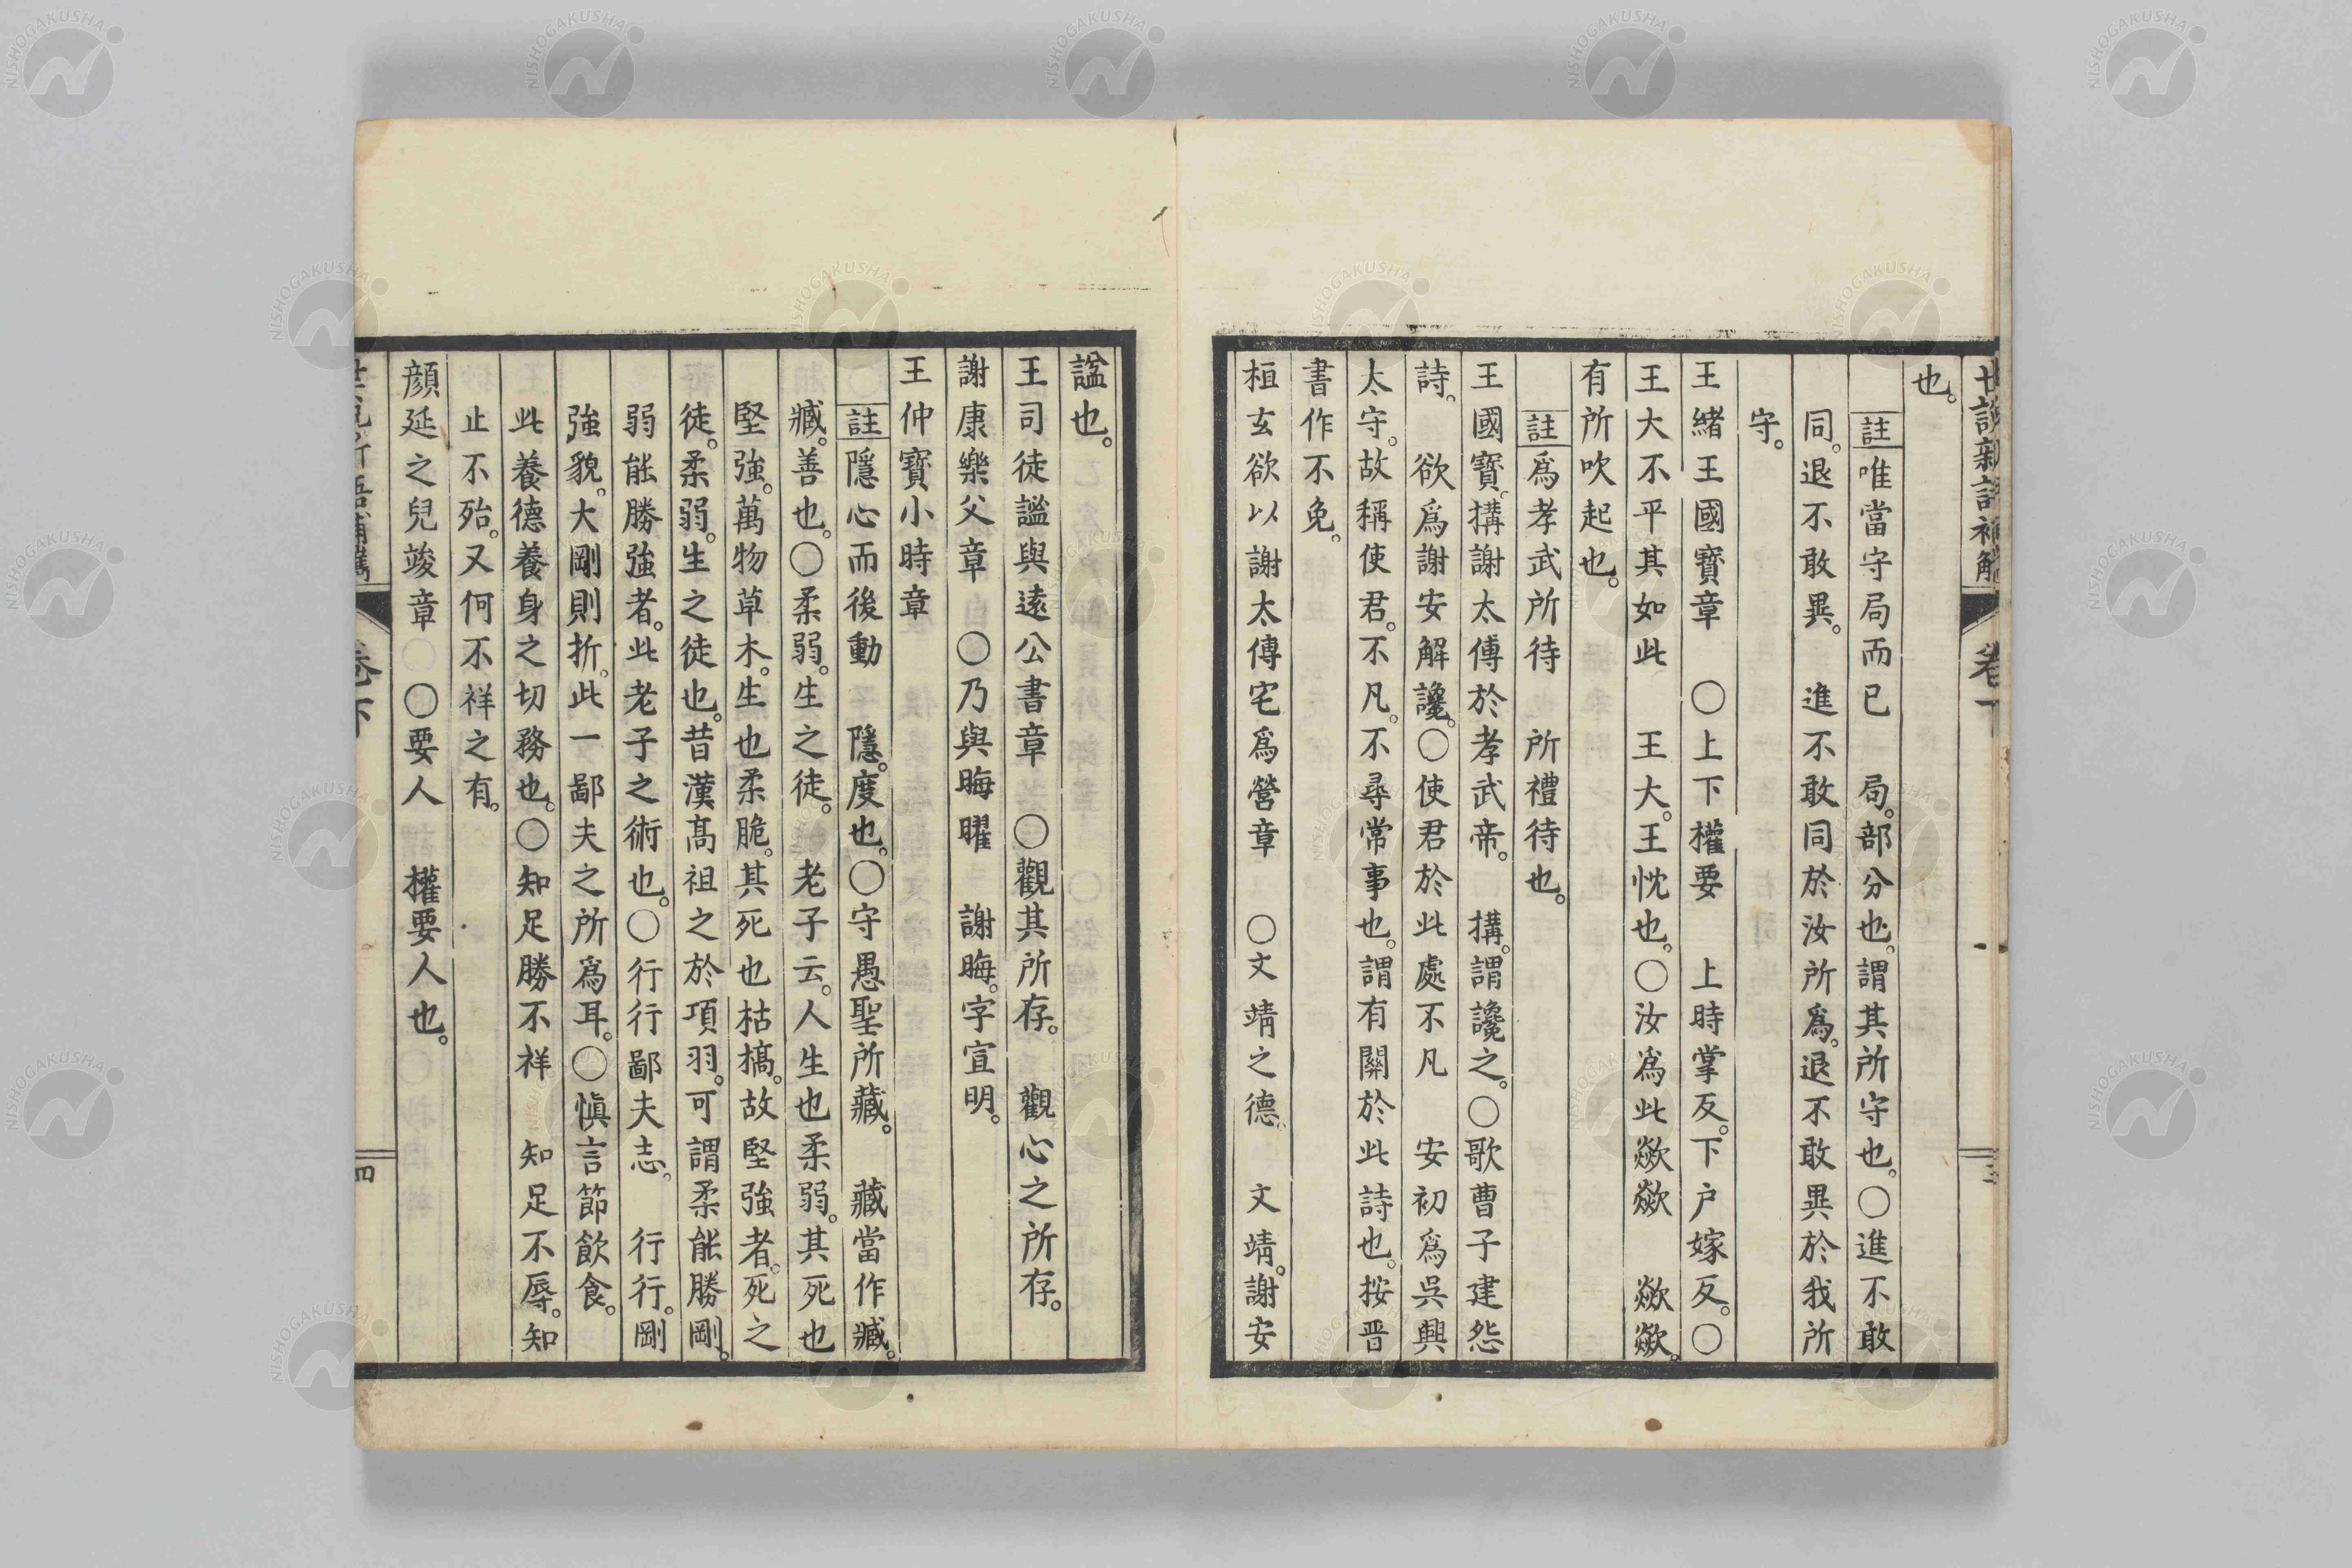 世說新語補觿 卷下 三
也。
註唯當守局而已 局。部分也。謂其所守也。○進不敢
同。退不敢異。 進不敢同於汝所爲。退不敢異於我所
守。
王緒王國寶章 ○上下權要 上時掌反。下戶嫁反。○
王大不平其如此 王大。王忱也。○汝爲此歘歘 歘歘。
有所吹起也。
註爲孝武所待 所禮待也。
王國寶。搆謝太傅於孝武帝。 搆。謂讒之。○歌曹子建怨
詩。 欲爲謝安解讒。○使君於此處不凡 安初爲吳興
太守。故稱使君。不凡。不尋常事也。謂有關於此詩也。按晉
書作不免。
桓玄欲以謝太傅宅爲營章 ○文靖之德。 文靖。謝安
諡也。
王司徒謐與遠公書章 ○觀其所存。 觀心之所存。
謝康樂父章 ○乃與晦曜 謝晦。字宣明。
王仲寶小時章
註隱心而後動 隱。度也。○守愚聖所藏。 藏當作臧。
臧。善也。○柔弱。生之徒。 老子云。人生也柔弱。其死也
堅強。萬物草木。生也柔脆。其死也枯槁。故堅強者。死之
徒。柔弱。生之徒也。昔漢高祖之於項羽。可謂柔能勝剛。
弱能勝強者。此老子之術也。○行行鄙夫志。 行行。剛
強貌。大剛則折。此一鄙夫之所爲耳。○慎言節飲食。
此養德養身之切務也。○知足勝不祥 知足不辱。知
止不殆。又何不祥之有。
顏延之兒竣章 ○要人 權要人也。
世說新語補觿 卷下 四
NISHOGAKUSHA